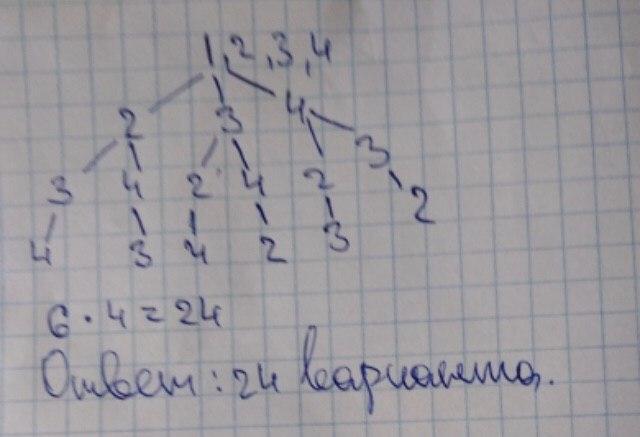 1,2,3,4
2 3 4
3 4 2 4 2 3
4 3 4 2 3 2
6 · 4 = 24
Ответ: 24 варианта.